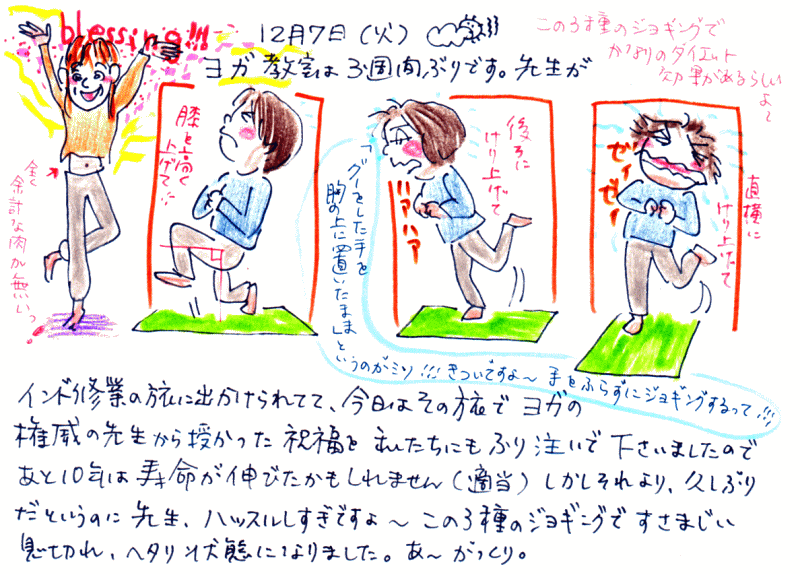 blessing!!!
12月7日(火)
ヨガ教室は3週間ぶりです。先生が
この3種のジョギングで
かなりのダイエット
効果があるらしい
よ〜
全く
余計な肉が無いっ
膝を高く
上げて!!
後ろに
けり上げて
ハァハァ
直横に
けり上げて
ゼー
ゼー
「グーをした手を
胸の上に置いたまま」
というのがミソ!!! きついですよ〜 手をふらずにジョギングするって!!!
インド修業の旅に出かけられてて、今日はその旅でヨガの
権威の先生から授かった祝福を私たちにもふり注いで下さいましたので
あと10年は寿命が伸びたかもしれません(適当)しかしそれより、久しぶり
だというのに先生、ハッスルしすぎですよ〜この3種のジョギングですさまじい
息切れ、ヘタリ状態になりました。あ〜がっくり。